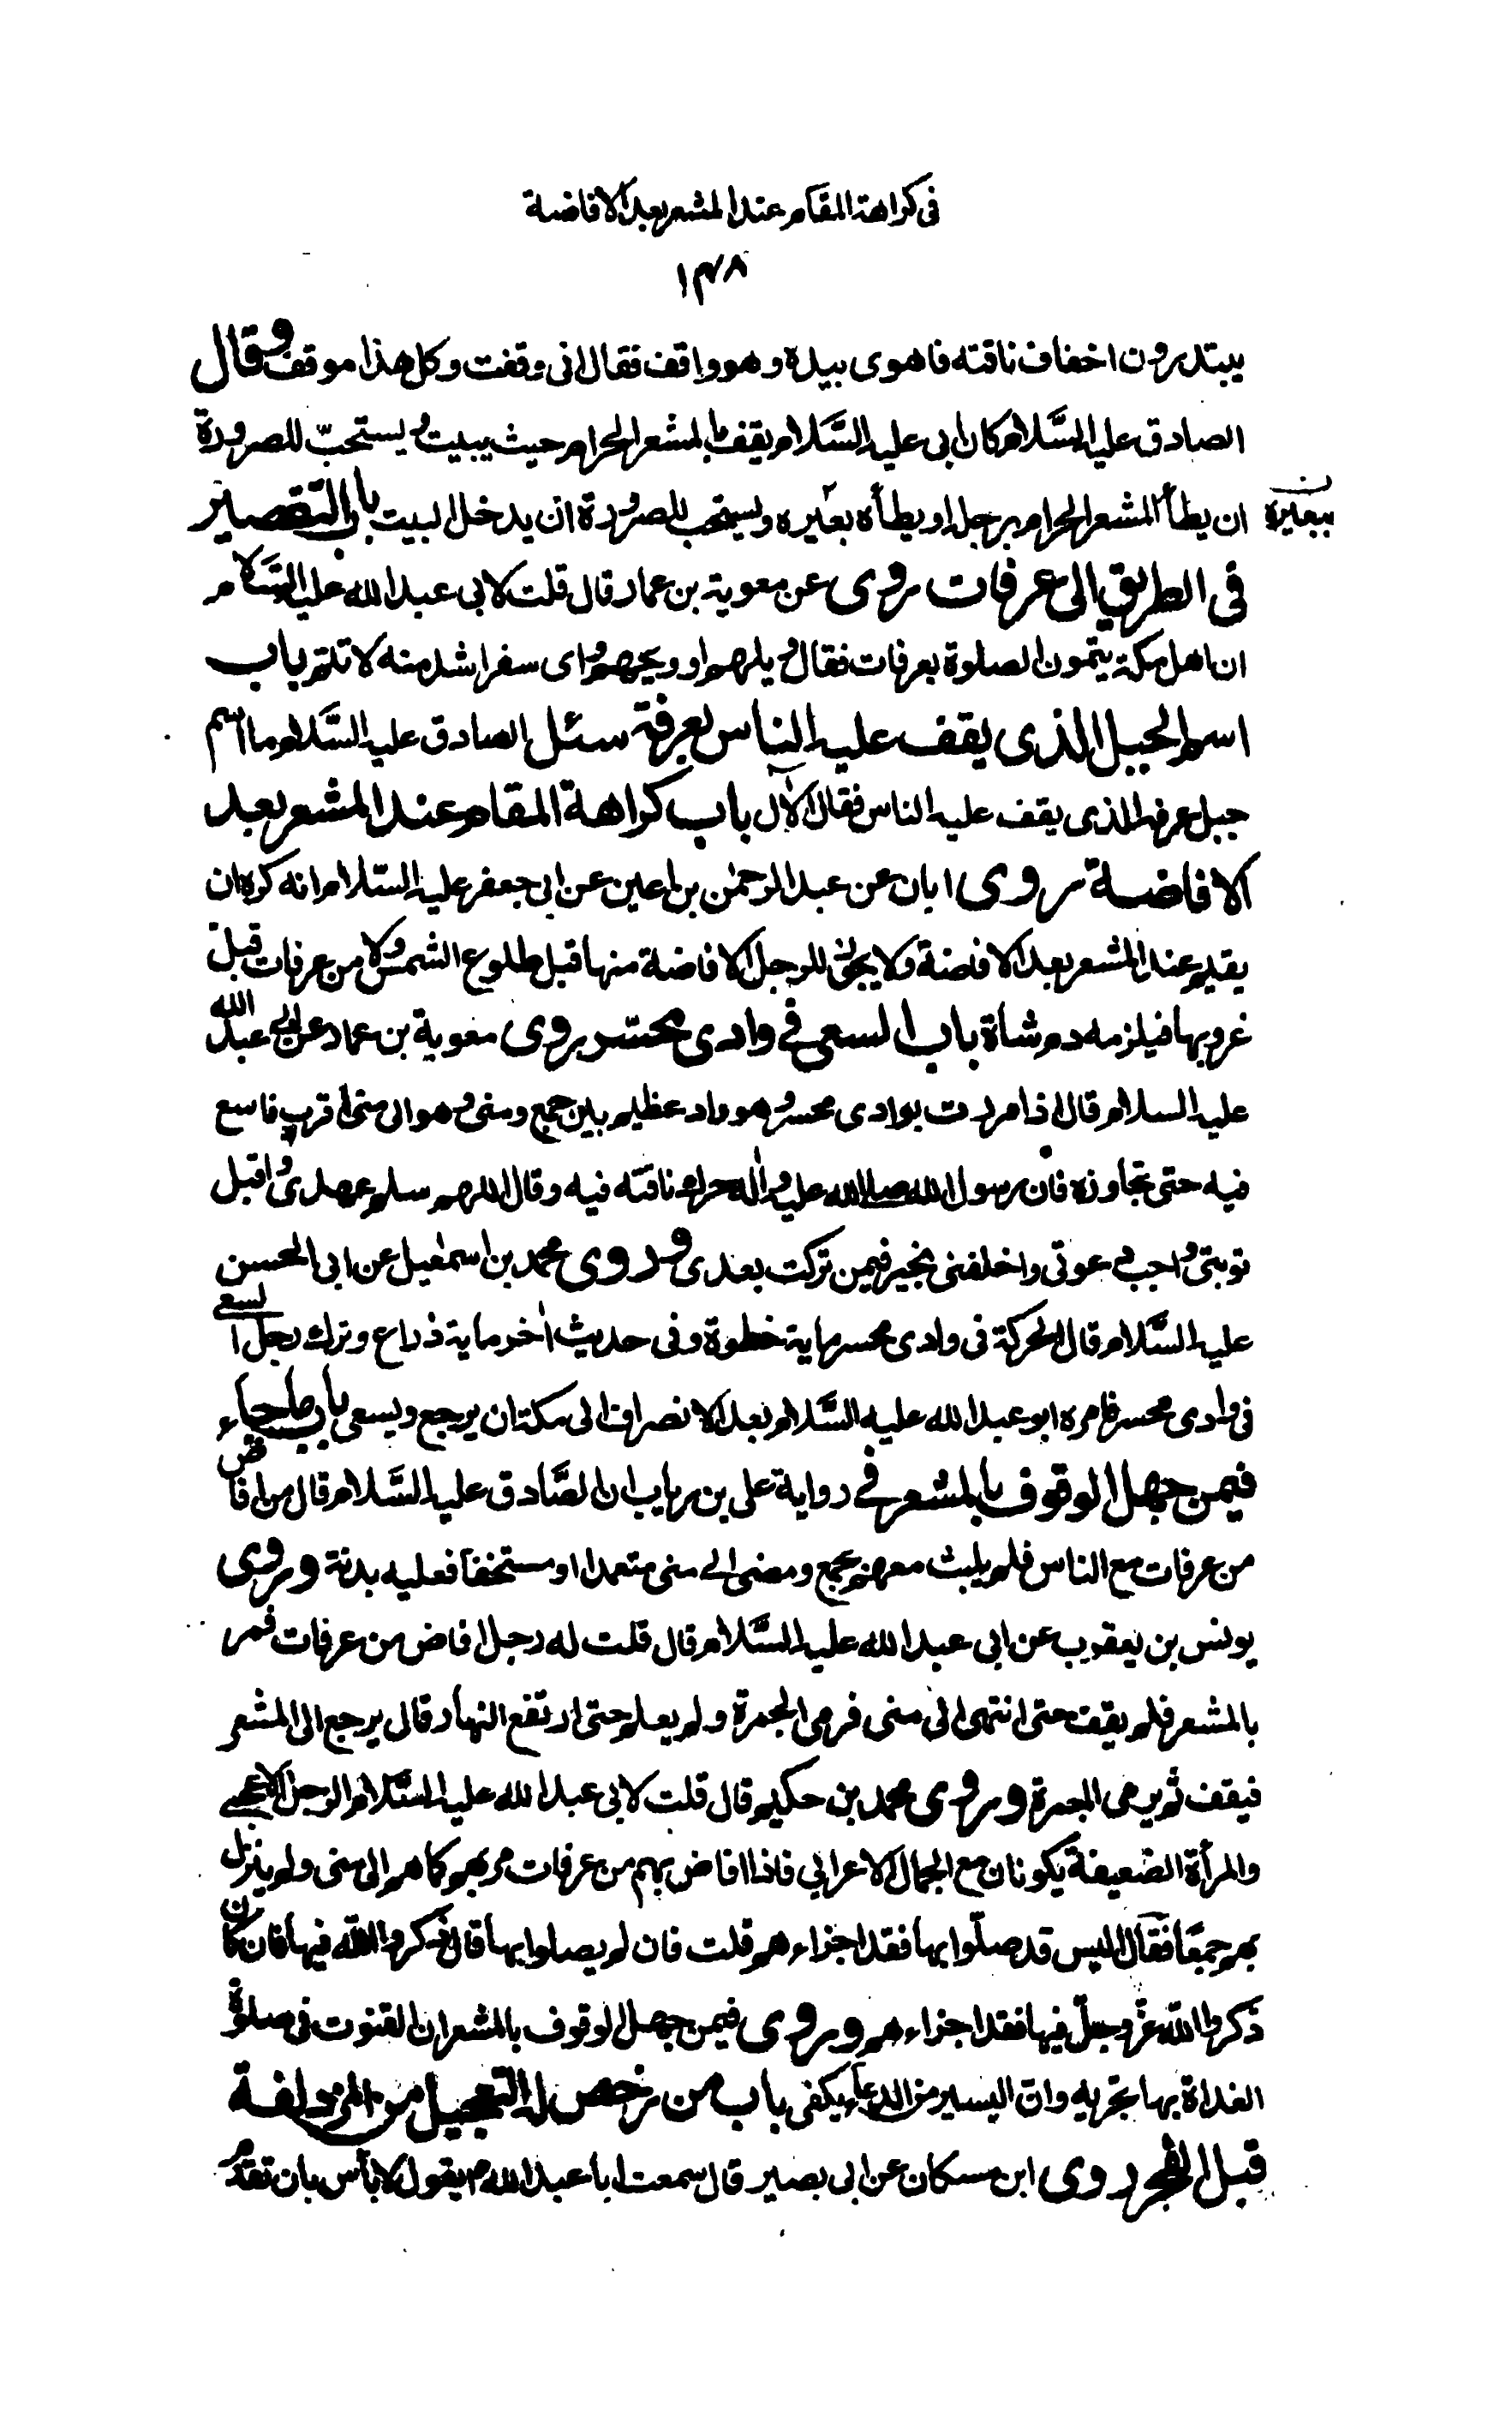 فى كراهة المقام عند المشعر بعد الافاضة
١٣٨
يبتدرون اخفاف ناقته فاهوى بيده وهو واقف فقال انى وقفت وكل هذا موقف وقال
الصادق عليه السَّلام كان ابى عليه السَّلام يقف بالمشعر الحرام حيث يبيت ويستحبّ للصرورة
ان يطأ المشعر الحرام برجله او يطأه بعيره ويستحب للصرورة ان يدخل البيت باب التقصير
ببعيره ن
فى الطريق الى عرفات روى عن معوية بن عمار قال قلت لابى عبد الله عليه السَّلام
ان اهل مكة يتمون الصلوة بعرفات فقال ويلهم او ويحهم واى سفر اشد منه لا تتم باب
اسم الجبل الذى يقف عليه الناس بعرفة سئل الصادق عليه السَّلام ما اسم
جبل عرفة الذى يقف عليه الناس فقال الآل باب كراهة المقام عند المشعر بعد
الافاضة روى ابان عن عبد الرحمن بن اعين عن ابى جعفر عليه السّلام انه كره ان
يقيم عند المشعر بعد الافاضة ولا يجوز للرجل الافاضة منها قبل طلوع الشمس ولا من عرفات قبل
غروبها فيلزمه دم شاة باب السعى فى وادى محسّر روى معوية بن عمار عن ابى عبد الله
عليه السلام قال اذا مررت بوادى محسر وهو واد عظيم بين جمع ومنى وهو الى منى اقرب فاسع
فيه حتى تجاوزه فان رسول الله صلى الله عليه واٰله حرك ناقته فيه وقال اللهم سلم عهدى واقبل
توبتى واجب دعوتى واخلفنى بخير فيمن تركت بعدى وروى محمد بن اسمٰعيل عن ابى الحسن
عليه السَّلام قال الحركة فى وادى محسر ماية خطوة وفى حديث اٰخر ماية ذراع وترك رجل السعى
فى وادى محسر فامره ابو عبد الله عليه السَّلام بعد الانصراف الى مكة ان يرجع ويسعى باب ما جاء
فيمن جهل الوقوف بالمشعر فى رواية على بن رياب ان الصَّادق عليه السَّلام قال من افاض
من عرفات مع الناس فلم يلبث معهم بجمع ومضى الى منى متعمدا او مستخفا فعليه بدنة وروى
يونس بن يعقوب عن ابى عبد الله عليه السَّلام قال قلت له رجل افاض من عرفات فمر
بالمشعر فلم يقف حتى انتهى الى منى فرمى الجمرة ولم يعلم حتى ارتفع النهار قال يرجع الى المشعر
فيقف ثم يرمى الجمرة وروى محمد بن حكيم قال قلت لابى عبد الله عليه السَّلام الرجل الاعجمى
والمرأة الضعيفة يكونان مع الجمال الاعرابى فاذا افاض بهم من عرفات مر بهم كما هم الى منى ولم ينزل
بهم جمعًا فقال اليس قد صلّوا بها فقد اجزاءهم قلت فان لم يصلوا بها قال ذكروا اللّه فيها فان كان
ذكروا اللّه عزّ وجلّ فيها فقد اجزاءهم وروى فيمن جهل الوقوف بالمشعر ان القنوت فى صلوة
الغداة بها تجزيه وان اليسير من الدعاء يكفى باب من رخص له التعجيل من المزدلفة
قبل الفجر روى ابن مسكان عن ابى بصير قال سمعت ابا عبد الله م يقول لا بأس بان تقدم